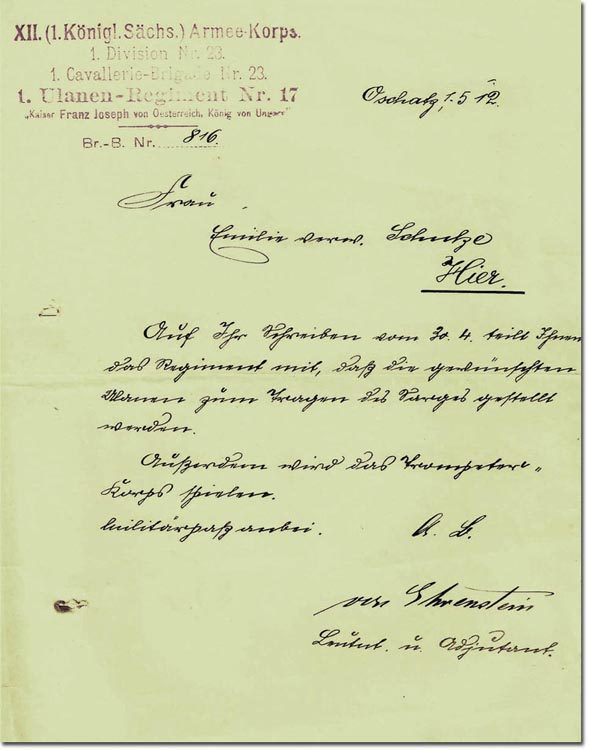 XII. (1. Königl. Sächs.) Armee-Korps.
1. Division Nr. 23.
1. Cavallerie-Brigade Nr. 23.
1. Ulanen-Regiment Nr. 17
„Kaiser Franz Joseph von Oesterreich, König von Ungarn"
Br.-B. Nr. 816.
Oschatz, 1. 5. 12.
Frau
Emilie verw. Schutze
Hier.
Auf Ihr Schreiben vom 30. 4. teilt Ihnen
das Regiment mit, daß die gewünschten
Ulanen zum Tragen des Sarges gestellt
werden.
Außerdem wird das Trompeter-
Korps spielen.
Militärpaß anbei.
A. B.
von Ehrenstein
Leutnt. u. Adjutant.